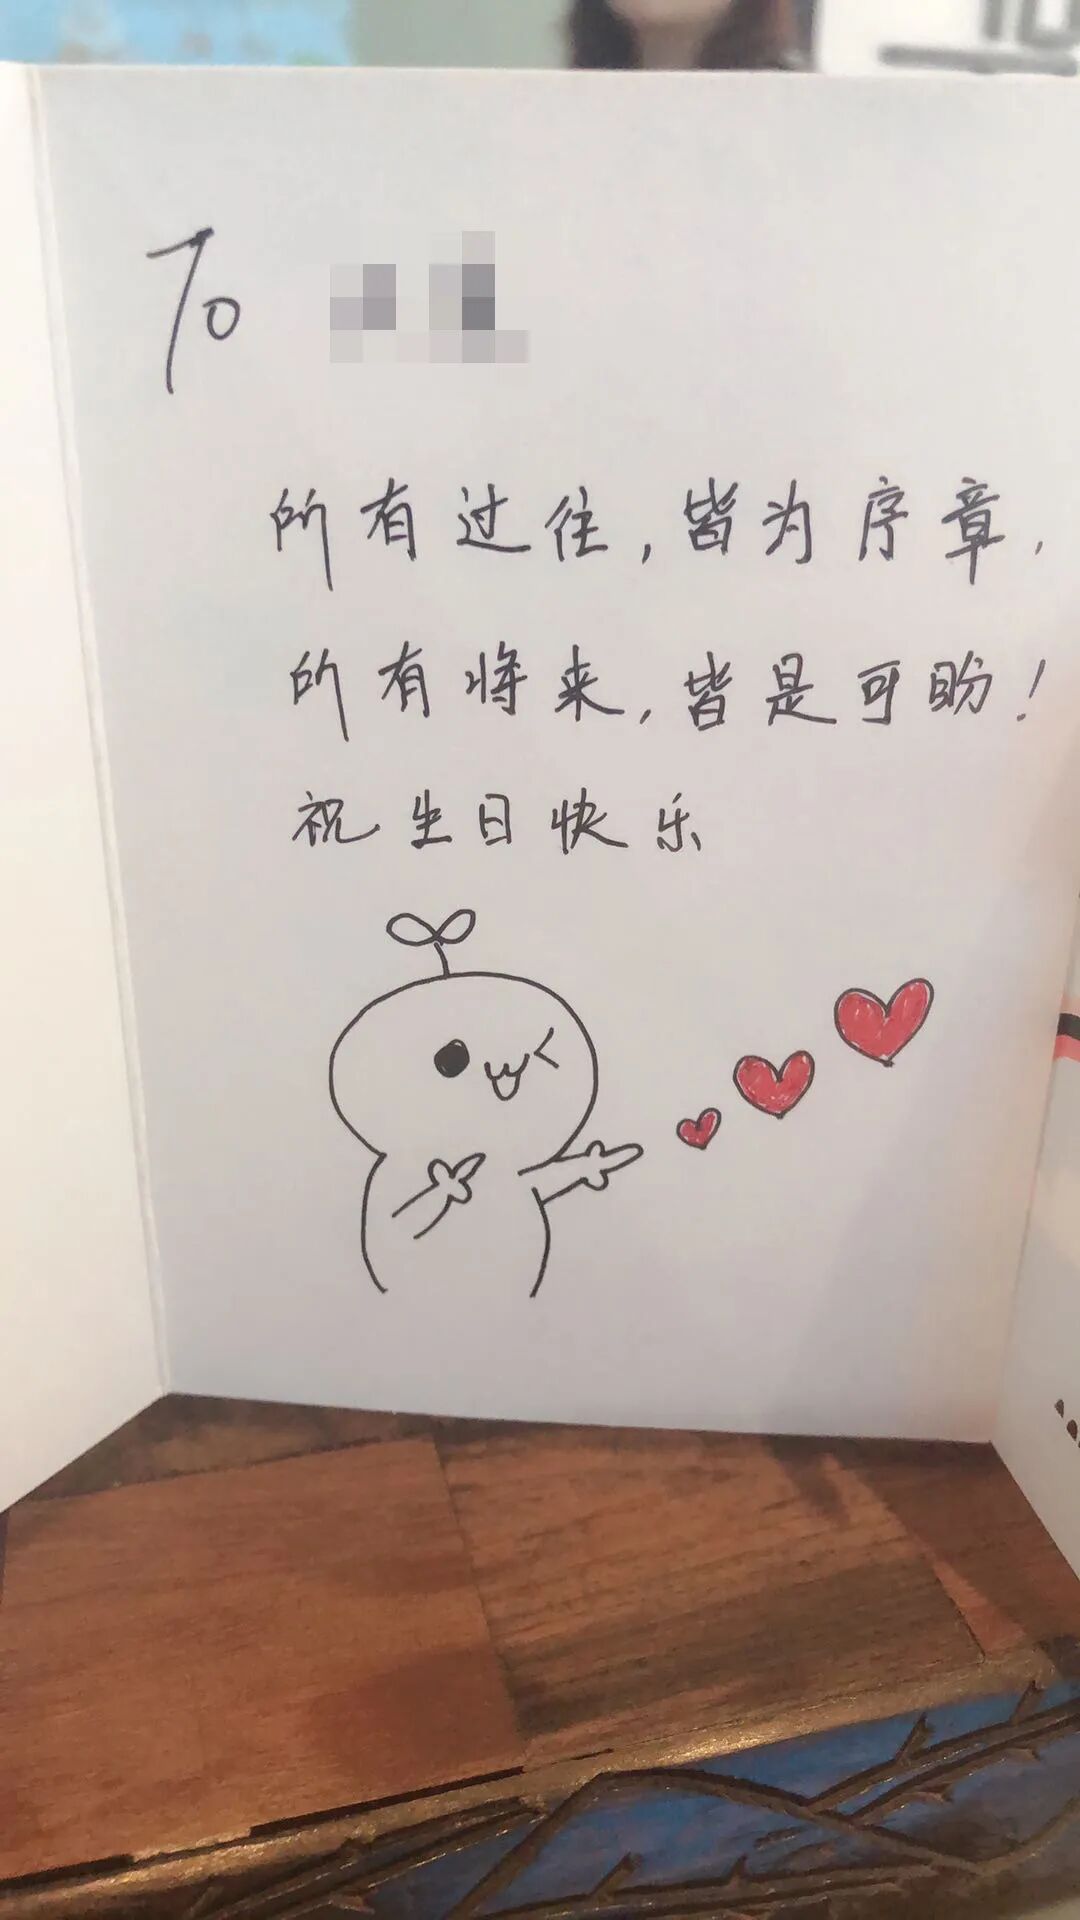 To
所有过往,皆为序章,
所有将来,皆是可盼!
祝生日快乐